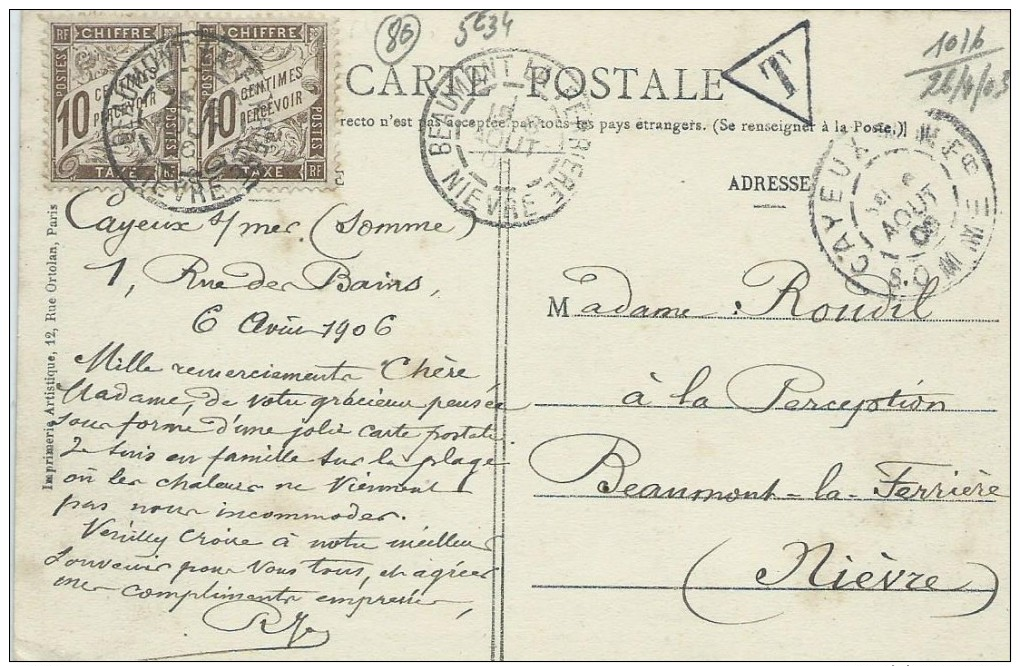 CHIFFRE CHIFFRE
RF POSTES 10 CENTIMES A PERCEVOIR TAXE
RF POSTES 10 CENTIMES A PERCEVOIR TAXE
86
5E34
T
CARTE POSTALE
recto n'est pas acceptée par tous les pays étrangers. (Se renseigner à la Poste.)
BEAUMONT LA FERRIERE
AOUT
NIEVRE
CAYEUX S MER
6
AOUT
06
SOMME
ADRESSE
Cayeux s/mer (Somme)
1, Rue des Bains,
6 Août 1906
Mille remerciements Chère
Madame, de votre gracieuse pensée
sous forme d'une jolie carte postale.
Je suis en famille sur la plage
où les chaleurs ne viennent
pas nous incommoder.
Veuillez croire à notre meilleur
souvenir pour vous tous, et agréer
mes compliments empressés,
Madame Roudil
à la Perception
Beaumont-la-Ferrière
(Nièvre)
Imprimerie Artistique, 12, Rue Ortolan, Paris